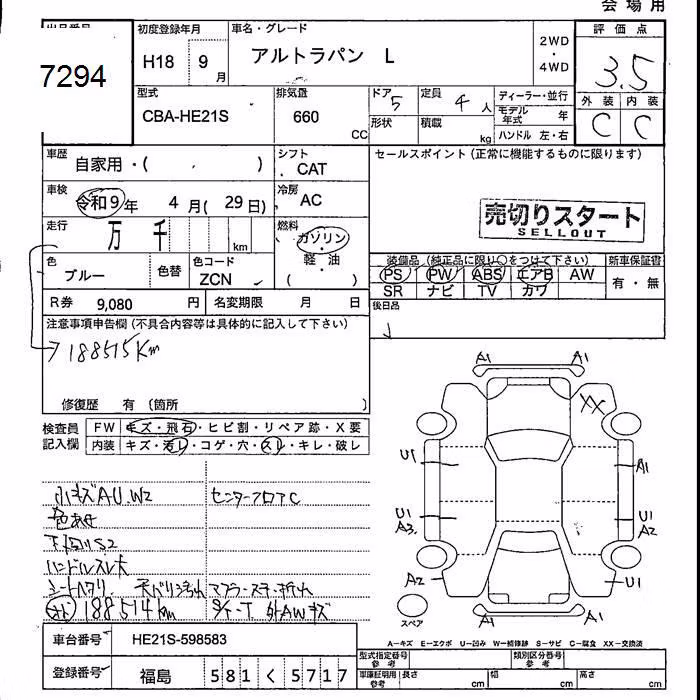 会場用
出品番号
7294
初度登録年月
H18 9月
車名・グレード
アルトラパン L
2WD
・
4WD
評価点
3.5
型式
CBA-HE21S
排気量
660
CC
ドア 5
定員 4人
形状
積載
kg
ディーラー・並行
モデル年式 年
ハンドル 左・右
外装 内装
C C
車歴
自家用・( . )
シフト
CAT
車検
令和9年 4月(29日)
冷房
AC
走行
万 千
km
燃料
ガソリン
・
軽・油
( )
セールスポイント(正常に機能するものに限ります)
売切りスタート
SELLOUT
色
ブルー
色替
色コード
ZCN
R券 9,080 円
名変期限 月 日
装備品(純正品に限り○をつけて下さい)
PS PW ABS エアB AW
SR ナビ TV カワ
新車保証書
有・無
後日品
注意事項申告欄(不具合内容等は具体的に記入して下さい)
188515Km
修復歴 有(箇所 )
検査員
記入欄
FW キズ・飛石・ヒビ割・リペア跡・X要
内装 キズ・汚レ・コゲ・穴・スレ・キレ・破レ
小キズAU.W2 センターフロアC
色あせ
下回りS2
ハンドルスレ大
シートヘタリ 天バリ汚れ マフラーステー折れ
188514km S/T-T 外AWキズ
A1 A1
XX
U1 A1
U1 U1
A3 A2
A2 U1
A1 A1
スペア
A-キズ E-エクボ U-凹み W-補修跡 S-サビ C-腐食 XX-交換済
車台番号 HE21S-598583
登録番号 福島 581 く 5717
型式指定番号 参考
類別区分番号 参考
車庫証明用 参考 長さ cm 幅 cm 高さ cm